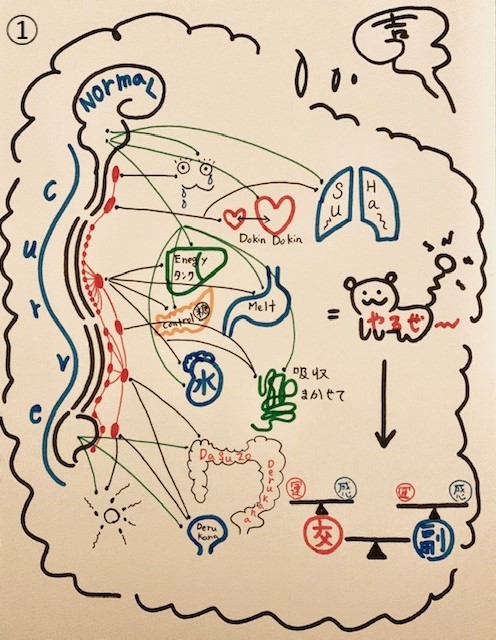 ①
NormaL
Curve
Su
Ha
Dokin Dokin
Energy
タンク
Melt
Control
水
吸収
まかせて
= やるぜ〜
Dasuzo
Derukana
Deru
Kana
運 感
運 感
交 副